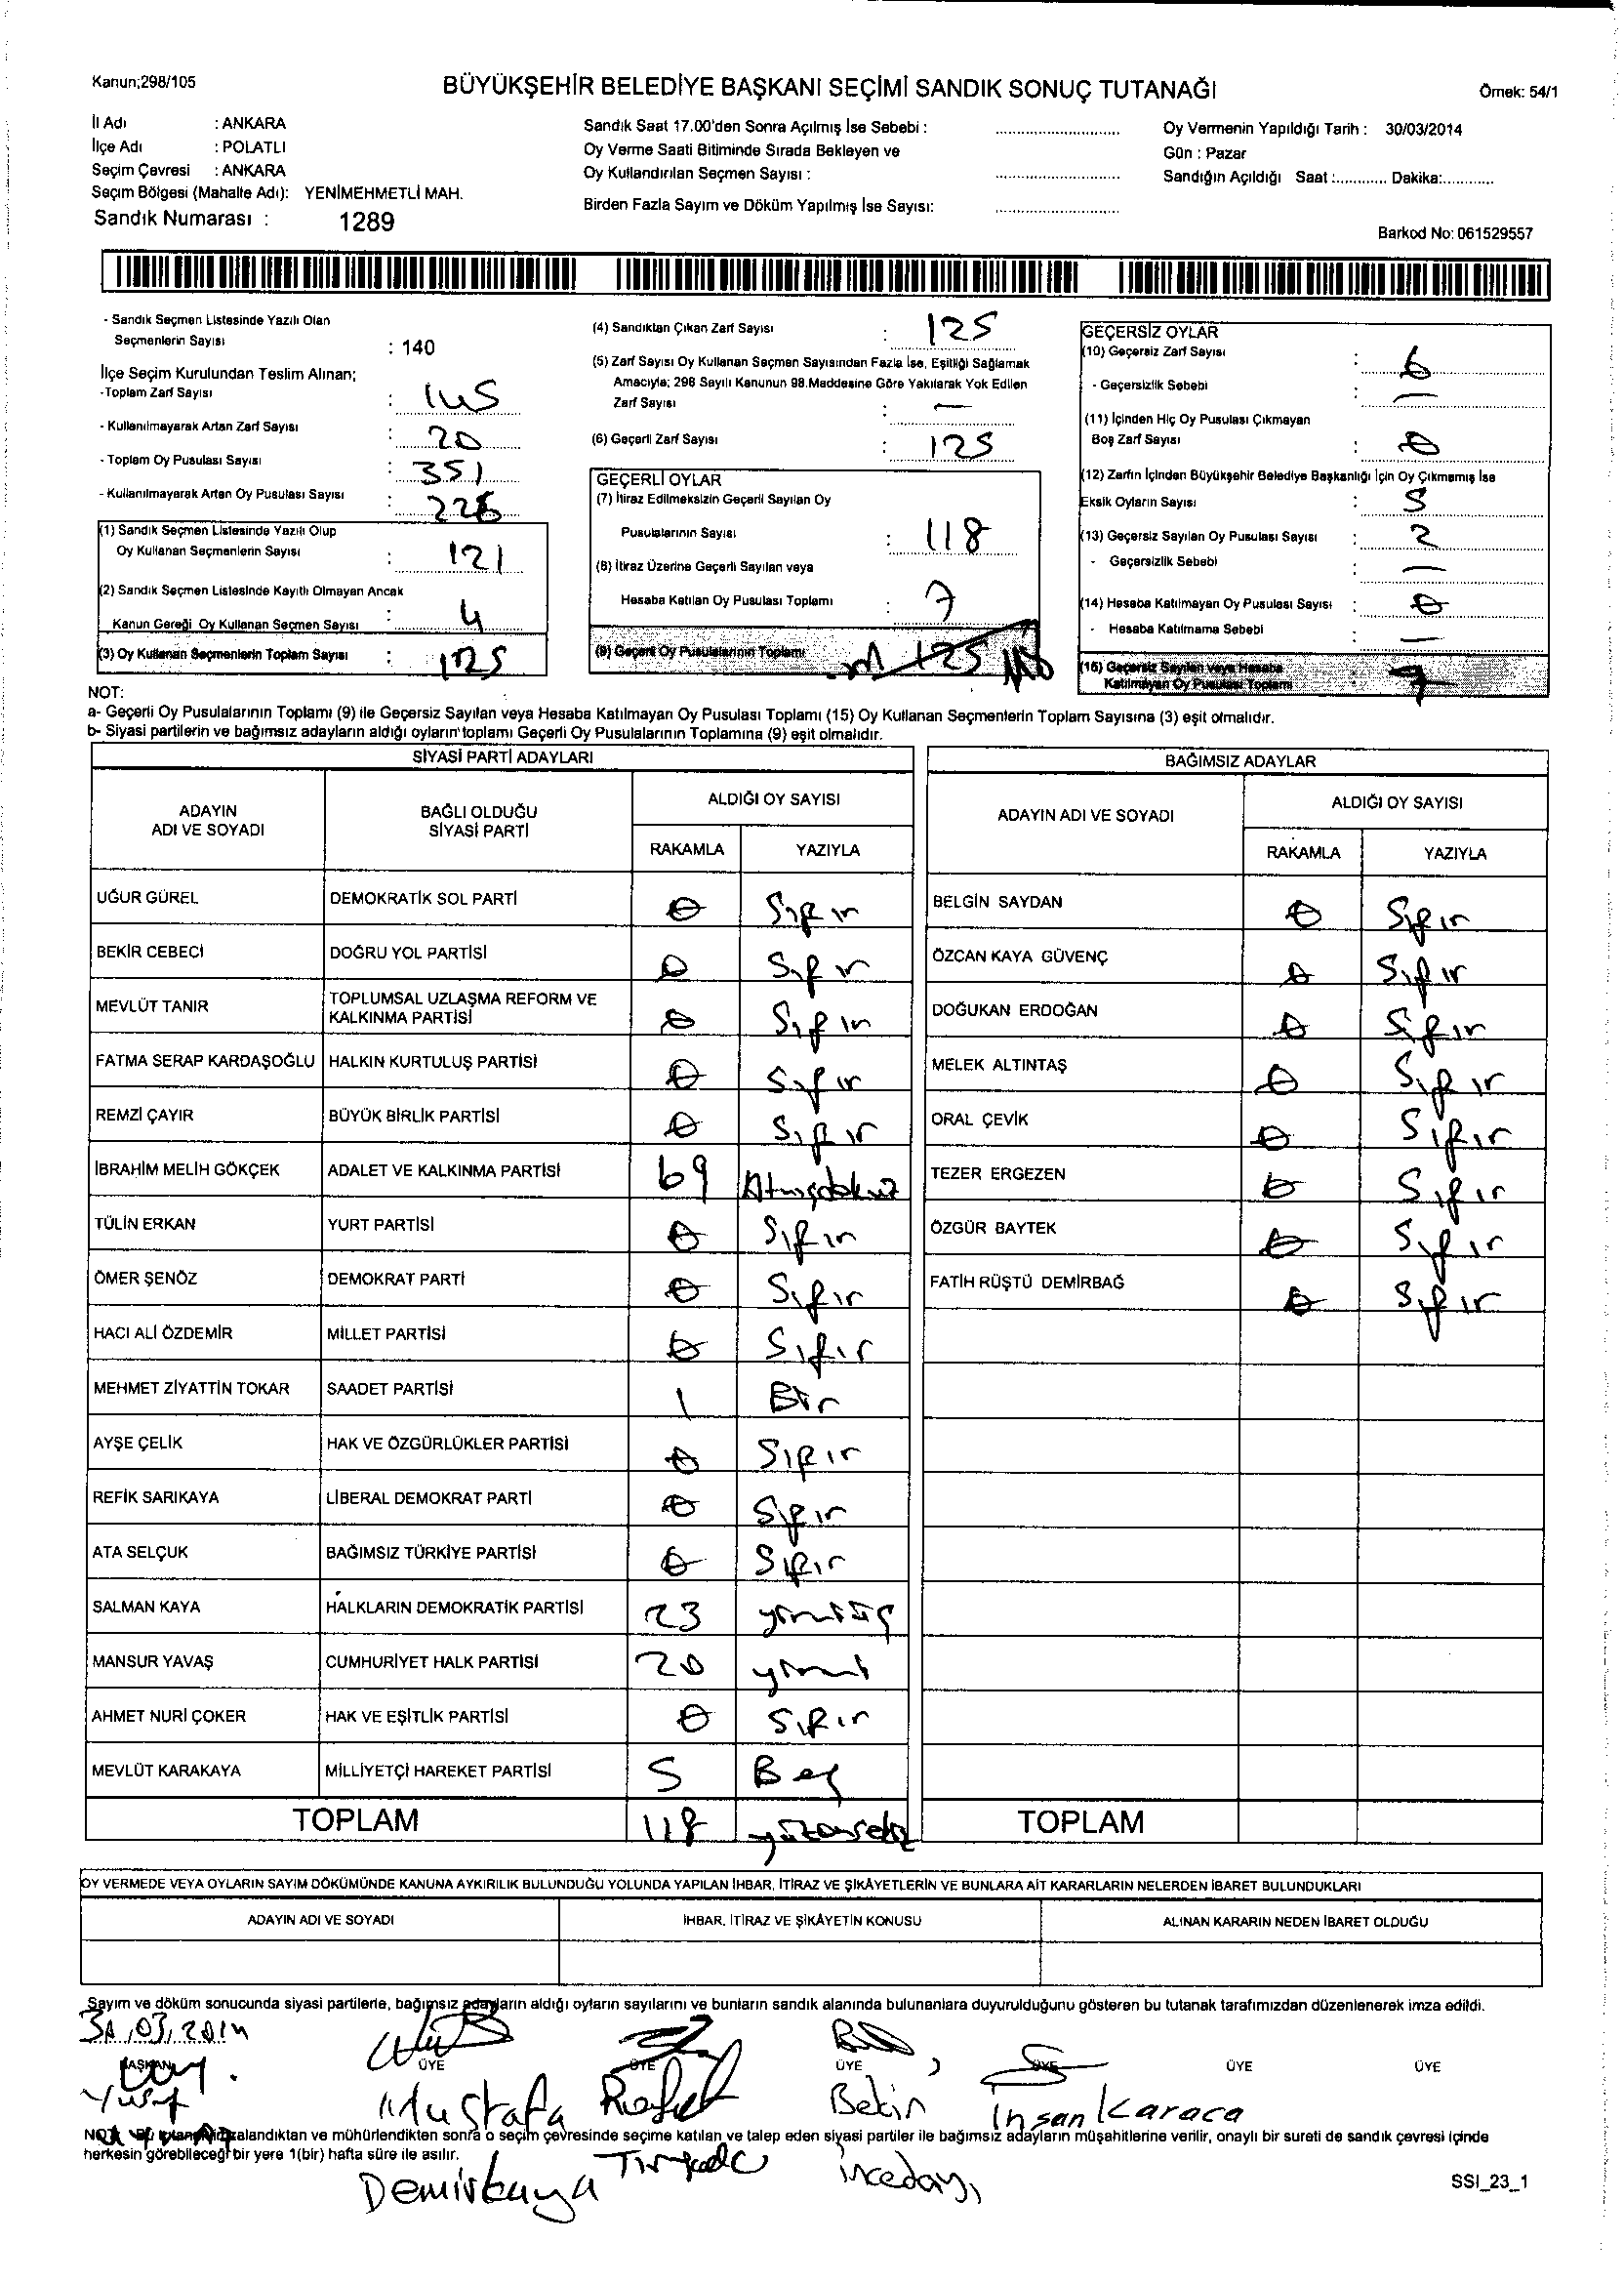 Kanun;298/105
BÜYÜKŞEHİR BELEDİYE BAŞKANI SEÇİMİ SANDIK SONUÇ TUTANAĞI
Örnek: 54/1
İl Adı : ANKARA
İlçe Adı : POLATLI
Seçim Çevresi : ANKARA
Seçim Bölgesi (Mahalle Adı): YENİMEHMETLİ MAH.
Sandık Numarası : 1289
Sandık Saat 17.00'den Sonra Açılmış İse Sebebi :
Oy Verme Saati Bitiminde Sırada Bekleyen ve
Oy Kullandırılan Seçmen Sayısı :
Birden Fazla Sayım ve Döküm Yapılmış İse Sayısı:
Oy Vermenin Yapıldığı Tarih : 30/03/2014
Gün : Pazar
Sandığın Açıldığı Saat :............ Dakika:...........
Barkod No: 061529557
- Sandık Seçmen Listesinde Yazılı Olan
Seçmenlerin Sayısı : 140
İlçe Seçim Kurulundan Teslim Alınan;
-Toplam Zarf Sayısı : 145
- Kullanılmayarak Artan Zarf Sayısı : 20
- Toplam Oy Pusulası Sayısı : 351
- Kullanılmayarak Artan Oy Pusulası Sayısı : 226
(1) Sandık Seçmen Listesinde Yazılı Olup
Oy Kullanan Seçmenlerin Sayısı : 121
(2) Sandık Seçmen Listesinde Kayıtlı Olmayan Ancak
Kanun Gereği Oy Kullanan Seçmen Sayısı : 4
(3) Oy Kullanan Seçmenlerin Toplam Sayısı : 125
(4) Sandıktan Çıkan Zarf Sayısı : 125
(5) Zarf Sayısı Oy Kullanan Seçmen Sayısından Fazla İse, Eşitliği Sağlamak
Amacıyla; 298 Sayılı Kanunun 98.Maddesine Göre Yakılarak Yok Edilen
Zarf Sayısı : —
(6) Geçerli Zarf Sayısı : 125
GEÇERLİ OYLAR
(7) İtiraz Edilmeksizin Geçerli Sayılan Oy
Pusulalarının Sayısı : 118
(8) İtiraz Üzerine Geçerli Sayılan veya
Hesaba Katılan Oy Pusulası Toplamı : 7
(9) Geçerli Oy Pusulalarının Toplamı 125
GEÇERSİZ OYLAR
(10) Geçersiz Zarf Sayısı : 6
- Geçersizlik Sebebi : —
(11) İçinden Hiç Oy Pusulası Çıkmayan
Boş Zarf Sayısı : 0
(12) Zarfın İçinden Büyükşehir Belediye Başkanlığı İçin Oy Çıkmamış İse
Eksik Oyların Sayısı : 5
(13) Geçersiz Sayılan Oy Pusulası Sayısı : 2
- Geçersizlik Sebebi : —
(14) Hesaba Katılmayan Oy Pusulası Sayısı : 0
- Hesaba Katılmama Sebebi : —
(15) Geçersiz Sayılan veya Hesaba
Katılmayan Oy Pusulası Toplamı : 7
NOT:
a- Geçerli Oy Pusulalarının Toplamı (9) ile Geçersiz Sayılan veya Hesaba Katılmayan Oy Pusulası Toplamı (15) Oy Kullanan Seçmenlerin Toplam Sayısına (3) eşit olmalıdır.
b- Siyasi partilerin ve bağımsız adayların aldığı oyların toplamı Geçerli Oy Pusulalarının Toplamına (9) eşit olmalıdır.
SİYASİ PARTİ ADAYLARI
ADAYIN ADI VE SOYADI BAĞLI OLDUĞU SİYASİ PARTİ ALDIĞI OY SAYISI
RAKAMLA YAZIYLA
UĞUR GÜREL DEMOKRATİK SOL PARTİ 0 Sıfır
BEKİR CEBECİ DOĞRU YOL PARTİSİ 0 Sıfır
MEVLÜT TANIR TOPLUMSAL UZLAŞMA REFORM VE KALKINMA PARTİSİ 0 Sıfır
FATMA SERAP KARDAŞOĞLU HALKIN KURTULUŞ PARTİSİ 0 Sıfır
REMZİ ÇAYIR BÜYÜK BİRLİK PARTİSİ 0 Sıfır
İBRAHİM MELİH GÖKÇEK ADALET VE KALKINMA PARTİSİ 69 Atmışdokuz
TÜLİN ERKAN YURT PARTİSİ 0 Sıfır
ÖMER ŞENÖZ DEMOKRAT PARTİ 0 Sıfır
HACI ALİ ÖZDEMİR MİLLET PARTİSİ 0 Sıfır
MEHMET ZİYATTİN TOKAR SAADET PARTİSİ 1 Bir
AYŞE ÇELİK HAK VE ÖZGÜRLÜKLER PARTİSİ 0 Sıfır
REFİK SARIKAYA LİBERAL DEMOKRAT PARTİ 0 Sıfır
ATA SELÇUK BAĞIMSIZ TÜRKİYE PARTİSİ 0 Sıfır
SALMAN KAYA HALKLARIN DEMOKRATİK PARTİSİ 23 yirmiüç
MANSUR YAVAŞ CUMHURİYET HALK PARTİSİ 20 yirmi
AHMET NURİ ÇOKER HAK VE EŞİTLİK PARTİSİ 0 Sıfır
MEVLÜT KARAKAYA MİLLİYETÇİ HAREKET PARTİSİ 5 Beş
TOPLAM 118 yüzonsekiz
BAĞIMSIZ ADAYLAR
ADAYIN ADI VE SOYADI ALDIĞI OY SAYISI
RAKAMLA YAZIYLA
BELGİN SAYDAN 0 Sıfır
ÖZCAN KAYA GÜVENÇ 0 Sıfır
DOĞUKAN ERDOĞAN 0 Sıfır
MELEK ALTINTAŞ 0 Sıfır
ORAL ÇEVİK 0 Sıfır
TEZER ERGEZEN 0 Sıfır
ÖZGÜR BAYTEK 0 Sıfır
FATİH RÜŞTÜ DEMİRBAĞ 0 Sıfır
TOPLAM
OY VERMEDE VEYA OYLARIN SAYIM DÖKÜMÜNDE KANUNA AYKIRILIK BULUNDUĞU YOLUNDA YAPILAN İHBAR, İTİRAZ VE ŞİKÂYETLERİN VE BUNLARA AİT KARARLARIN NELERDEN İBARET BULUNDUKLARI
ADAYIN ADI VE SOYADI İHBAR, İTİRAZ VE ŞİKÂYETİN KONUSU ALINAN KARARIN NEDEN İBARET OLDUĞU
Sayım ve döküm sonucunda siyasi partilerle, bağımsız adayların aldığı oyların sayılarını ve bunların sandık alanında bulunanlara duyurulduğunu gösteren bu tutanak tarafımızdan düzenlenerek imza edildi.
30.03.2014
BAŞKAN ÜYE ÜYE ÜYE ÜYE ÜYE ÜYE
Yusuf Mustafa Refet Bekir İhsan Karaca
NOT: Bu tutanak imzalandıktan ve mühürlendikten sonra o seçim çevresinde seçime katılan ve talep eden siyasi partiler ile bağımsız adayların müşahitlerine verilir, onaylı bir sureti de sandık çevresi içinde
herkesin görebileceği bir yere 1(bir) hafta süre ile asılır.
Demirkaya İncedayı
SSI_23_1